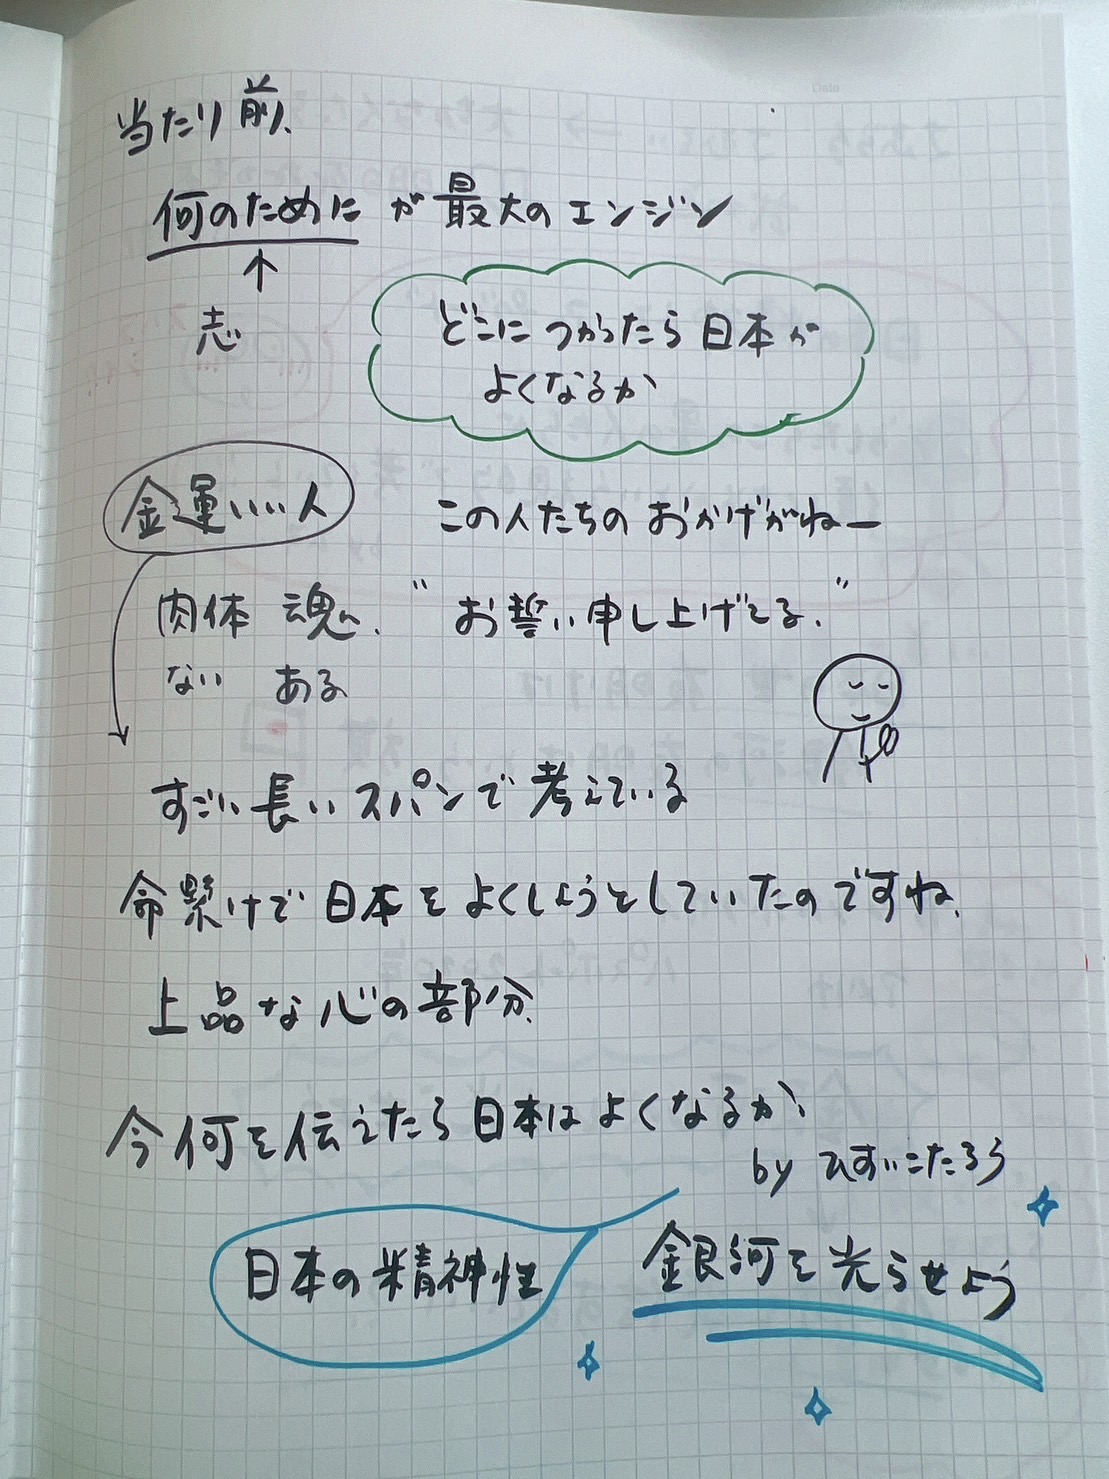 当たり前、
何のために が 最大の エンジン
↑
志
どこに つかったら 日本が
よくなるか
金運いい人
この人たちの おかげがねー
肉体 魂、
“お誓い申し上げてる。”
ない ある
すごい 長い スパンで 考えている
命懸けで 日本を よくしようとしていたのですね、
上品な 心の部分、
今何を伝えたら 日本は よくなるか、
by ひすいこたろう
日本の精神性
銀河を光らせよう